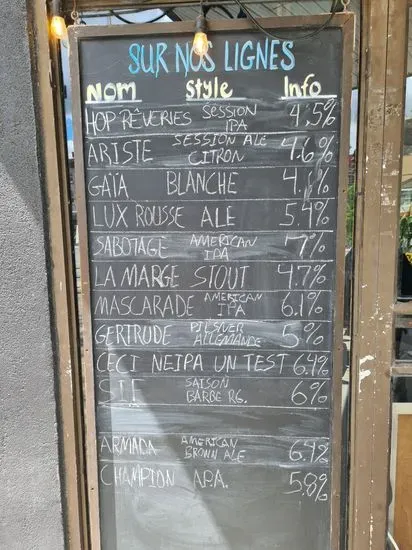 SUR NOS LIGNES
NOM STYLE Info
HOP RÊVERIES SESSION IPA 4.5%
ARISTE SESSION ALE CITRON 4.6%
GAÏA BLANCHE 4. %
LUX ROUSSE ALE 5.4%
SABOTAGE AMERICAN IPA 7%
LA MARGE STOUT 4.7%
MASCARADE AMERICAN IPA 6.1%
GERTRUDE PILSNER ALLEMANDE 5%
CECI NEIPA UN TEST 6.4%
SAISON BARBE RG. 6%
ARMADA AMERICAN BROWN ALE 6.4%
CHAMPION A.P.A. 5.8%